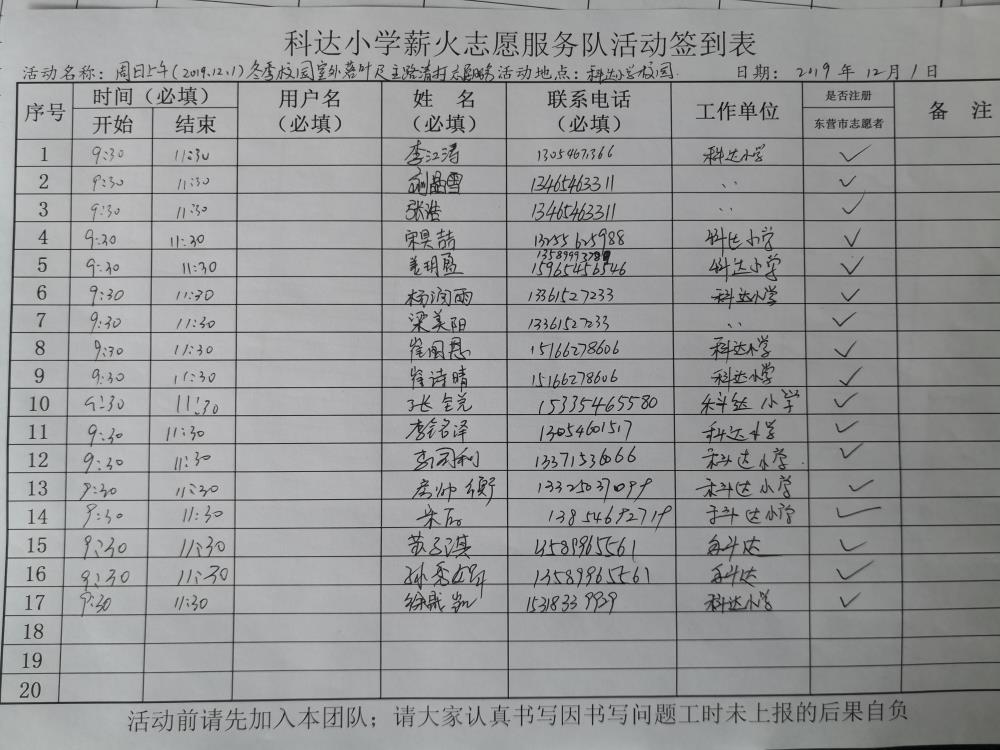 科达小学薪火志愿服务队活动签到表
活动名称：周日上午(2019.12.1)冬季校园室外落叶及主路清扫志愿服务 活动地点：科达小学校园 日期：2019年12月1日
序号 时间（必填） 用户名（必填） 姓 名（必填） 联系电话（必填） 工作单位 是否注册东营市志愿者 备 注
开始 结束
1 9:30 11:30 李江涛 1305467366 科达小学 ✓
2 9:30 11:30 13465463311 〃 ✓
3 9:30 11:30 张浩 13465463311 〃 ✓
4 9:30 11:30 宋昊喆 13255625988 科达小学 ✓
5 9:30 11:30 姜玥盈 15965456546 科达小学 ✓
6 9:30 11:30 杨润雨 13361527233 科达小学 ✓
7 9:30 11:30 梁美阳 13361527233 〃 ✓
8 9:30 11:30 崔国恩 15166278606 科达小学 ✓
9 9:30 11:30 崔诗晴 15166278606 科达小学 ✓
10 9:30 11:30 张 15335465580 科达小学 ✓
11 9:30 11:30 李铭泽 13054601517 科达小学 ✓
12 9:30 11:30 13371536066 科达小学 ✓
13 9:30 11:30 13325037099 科达小学 ✓
14 9:30 11:30 13854692719 科达小学 ✓
15 9:30 11:30 苏子淇 13589965561 科达 ✓
16 9:30 11:30 孙 13589965561 科达 ✓
17 9:30 11:30 徐晟凯 15318339929 科达小学 ✓
18
19
20
活动前请先加入本团队；请大家认真书写因书写问题工时未上报的后果自负